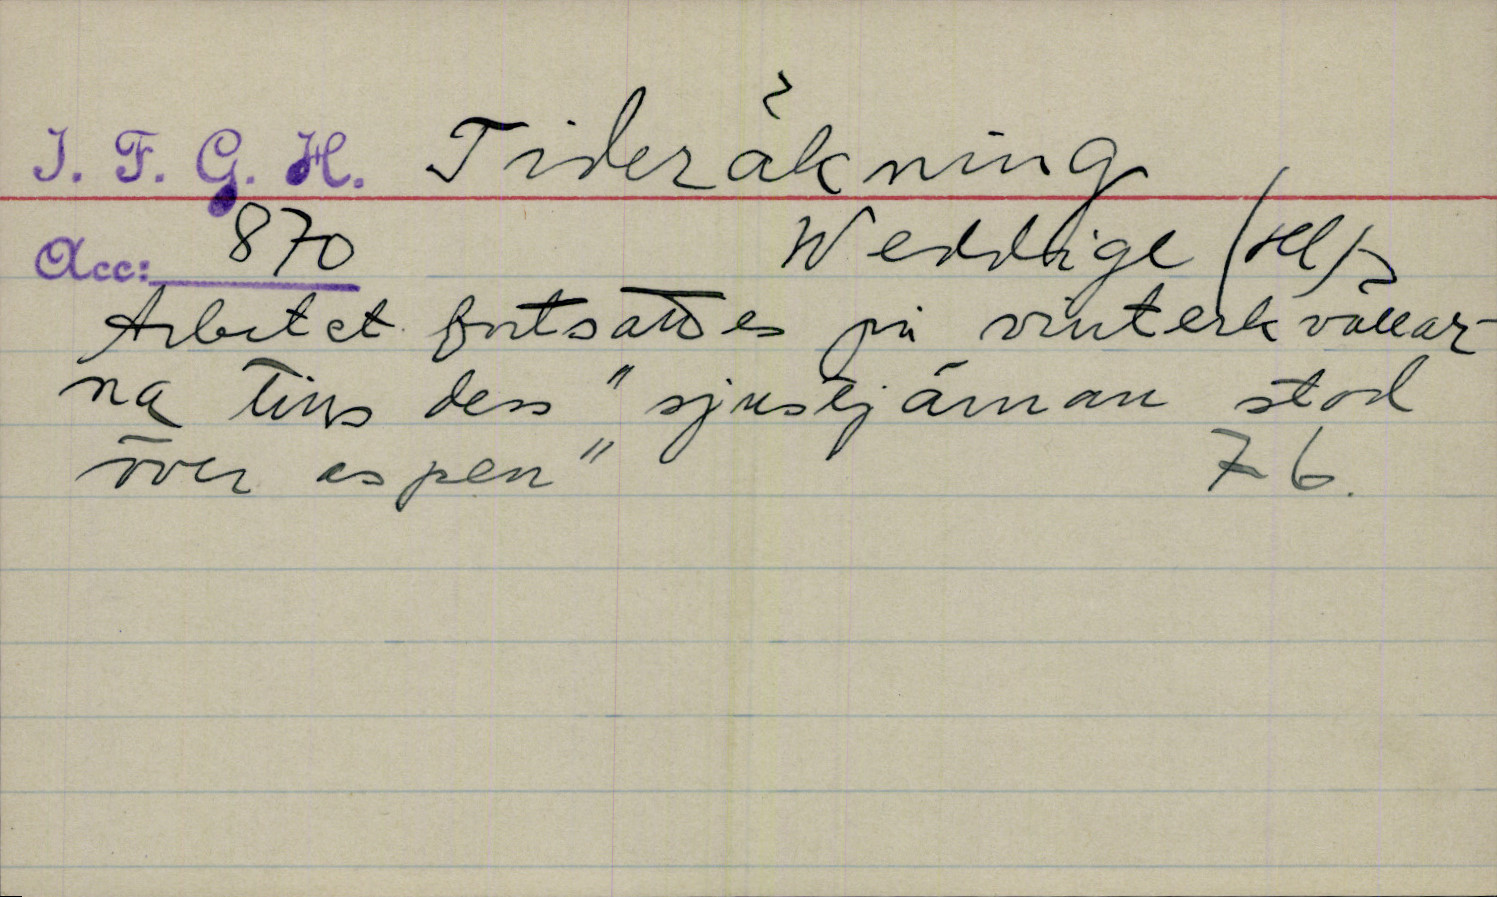 I. F. G. H. Tideräkning
Acc: 870 Weddige (Hl)
Arbetet fortsattes på vinterkvällar-
na tills dess "sjustjärnan stod
över aspen" 76.